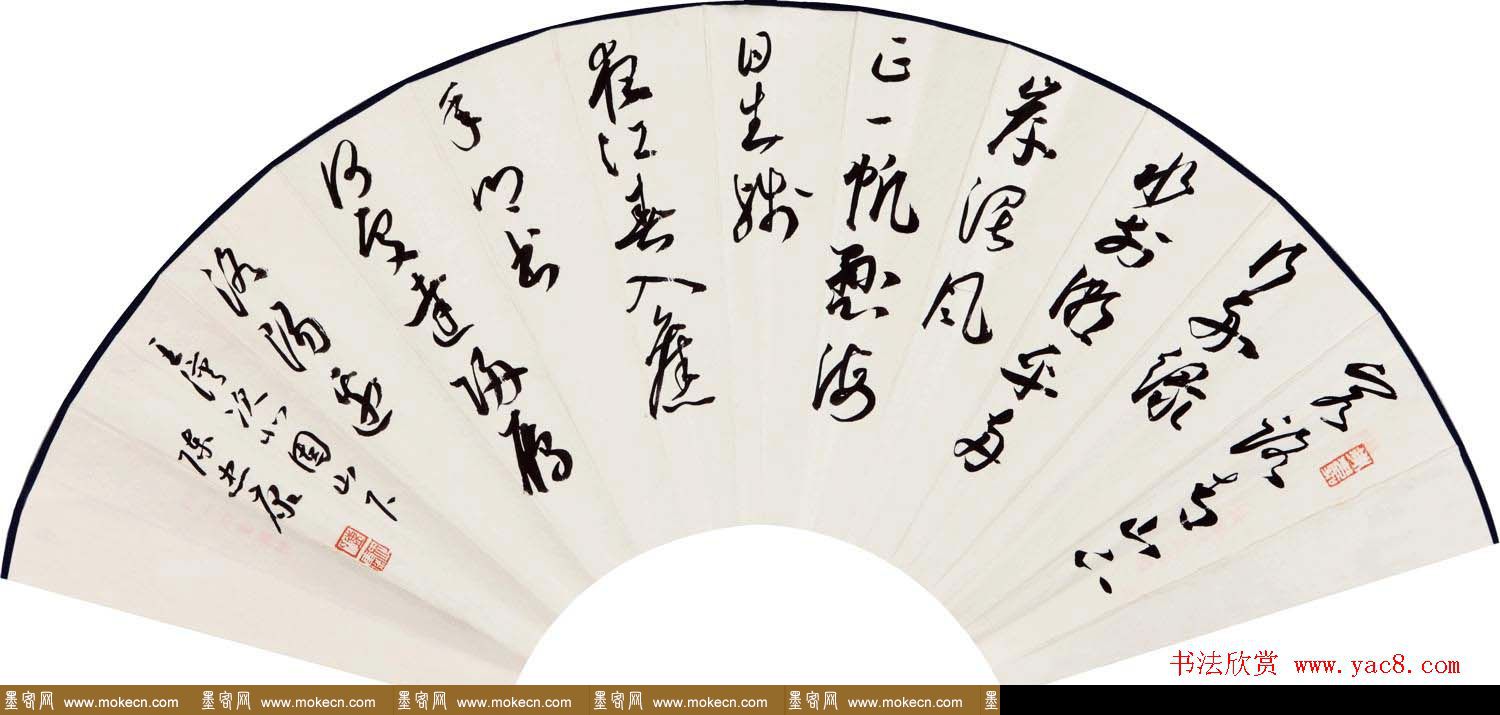 客路青山外
行舟綠
水前潮平兩
岸闊風
正一帆懸海
日生殘
夜江春入舊
年鄉書
何處達歸雁
洛陽邊
王灣次北固山下
陳世
书法欣赏 www.yac8.com
墨客网 www.mokecn.com 墨客网 www.mokecn.com 墨客网 www.mokecn.com 墨客网 www.mokecn.com 墨客网 www.mokecn.com 墨